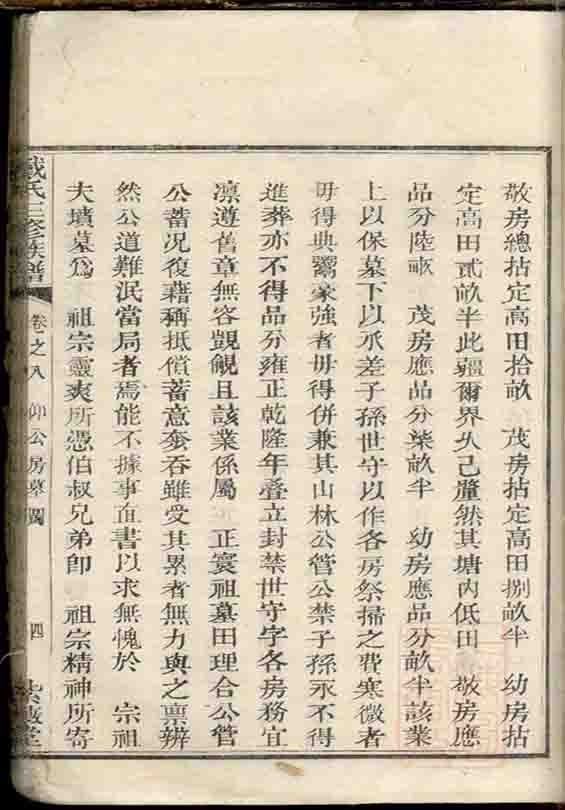 敬房總拈定高田拾畝　茂房拈定高田捌畝半　幼房拈
定高田貳畝半此疆爾界久已釐然其塘內低田　敬房應
品分陸畝　茂房應品分柒畝半　幼房應品分畝半該業
上以保墓下以承差子孫世守以作各房祭掃之費寒微者
毋得典鬻豪強者毋得併兼其山林公管公禁子孫永不得
進葬亦不得品分雍正乾隆年叠立封禁世守字各房務宜
凛遵舊章無容覬覦且該業係屬　正寰祖墓田理合公管
公蓄況復藉稱抵償蓄意夽吞雖受其累者無力與之禀辨
然公道難泯當局者焉能不據事直書以求無愧於　宗祖
夫墳墓爲　祖宗靈爽所憑伯叔兄弟卽　祖宗精神所寄
戴氏三修族譜　卷之八　仰公房墓圖　四　紫薇堂